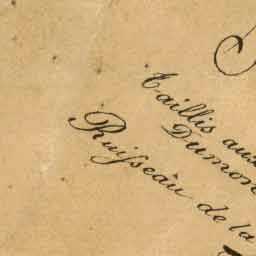 Taillis aux
Dumon
Ruisseau de la